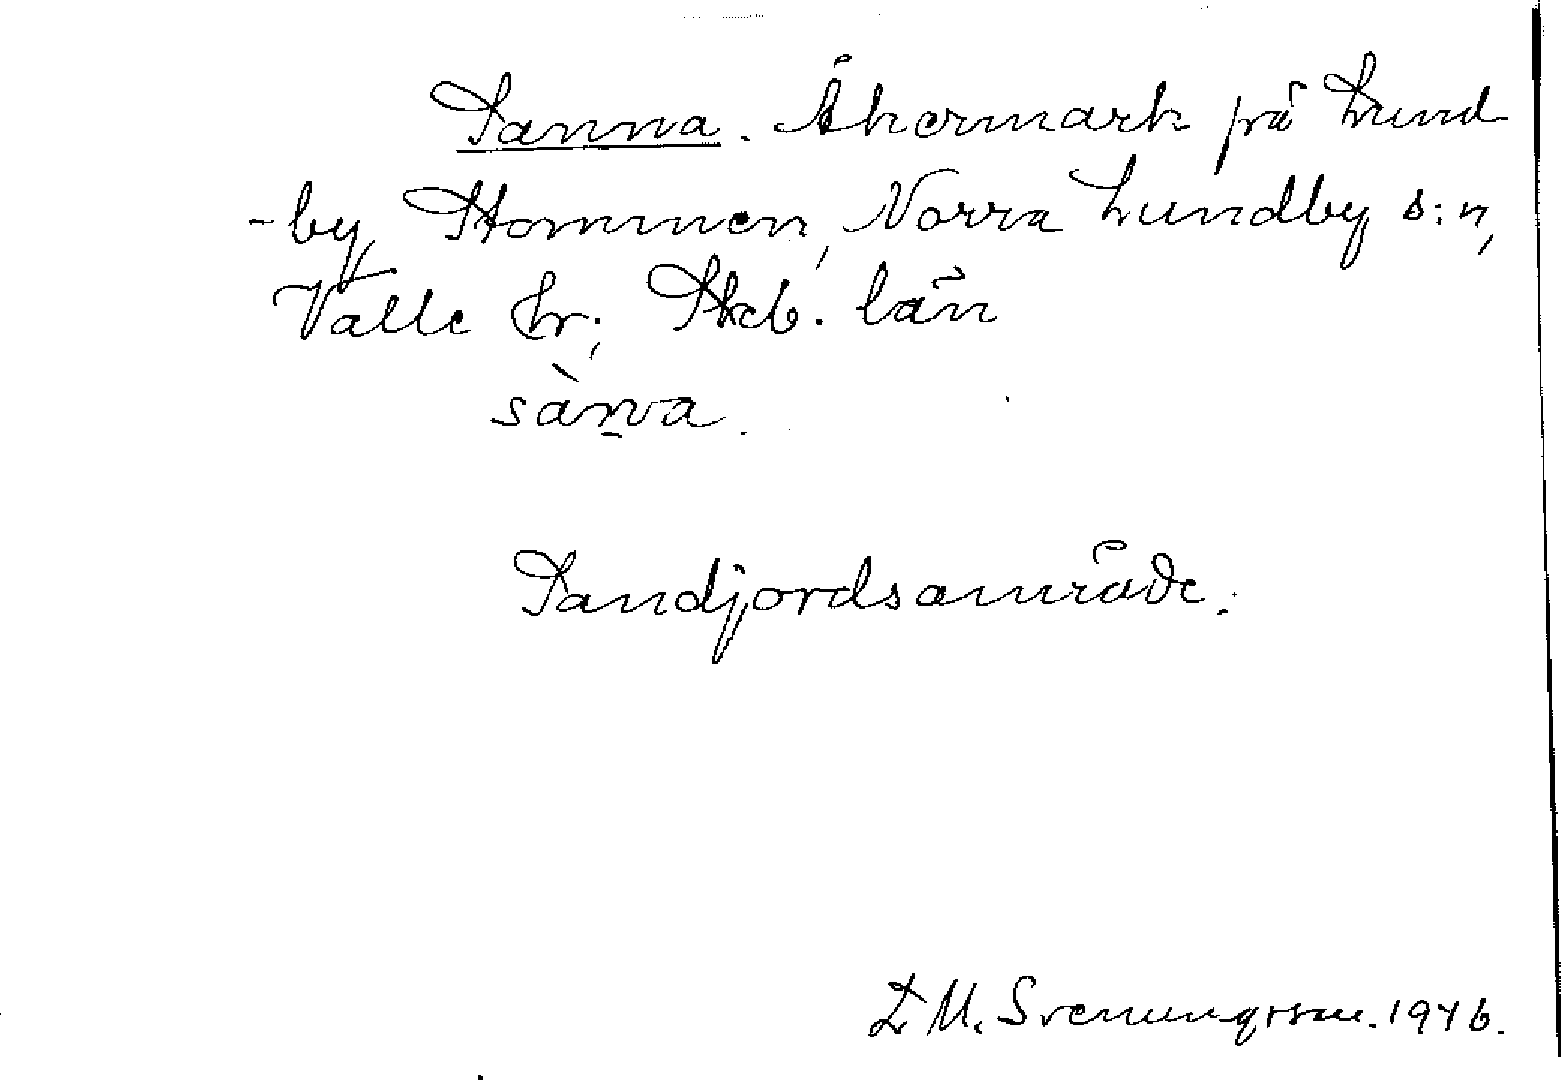 Sanna. Åkermark på Lund
-by Stommen, Norra Lundby s:n,
Valle hr; Skb. län
sàn̠a.
Sandjordsområde.
L M. Svenungsson. 1946.